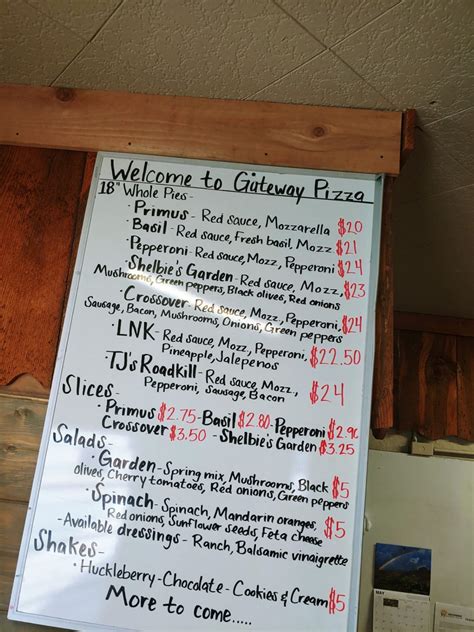 Welcome to Gateway Pizza
18" Whole Pies-
· Primus - Red sauce, Mozzarella $20
· Basil - Red sauce, Fresh basil, Mozz. $21
· Pepperoni - Red sauce, Mozz., Pepperoni $24
· Shelbie's Garden - Red sauce, Mozz., $23
Mushrooms, Green peppers, Black olives, Red onions
· Crossover - Red sauce, Mozz., Pepperoni, $24
Sausage, Bacon, Mushrooms, Onions, Green peppers
· LNK - Red sauce, Mozz., Pepperoni, $22.50
Pineapple, Jalepenos
· TJ's RoadKill - Red sauce, Mozz., $24
Pepperoni, Sausage, Bacon
Slices-
· Primus $2.75 - Basil $2.80 - Pepperoni $2.90
Crossover $3.50 - Shelbie's Garden $3.25
Salads-
· Garden - Spring mix, Mushrooms, Black $5
olives, Cherry tomatoes, Red onions, Green peppers
· Spinach - Spinach, Mandarin oranges, $5
Red onions, Sunflower seeds, Feta cheese
- Available dressings - Ranch, Balsamic vinaigrette
Shakes-
· Huckleberry - Chocolate - Cookies & Cream $5
More to come.....
MAY